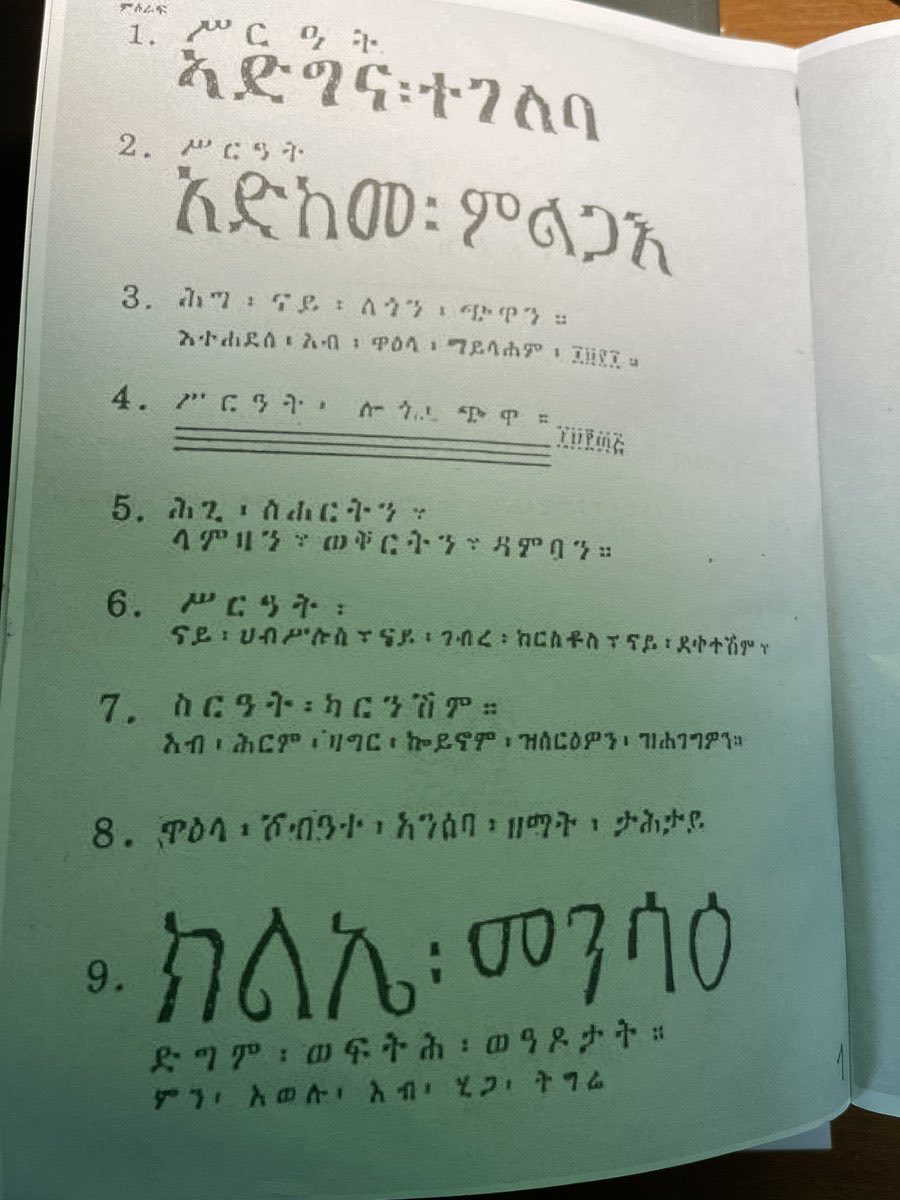 ምዕራፍ
1. ሥርዓት
ኣድግና፡ተገለባ
2. ሥርዓት
አድከመ፡ምልጋእ
3. ሕግ፡ናይ፡ለጎን፡ጭዋን።
እተሐደሰ፡አብ፡ዋዕላ፡ማይላሐም፡
4. ሥርዓት፡ ሎጎ ጭዋ።
5. ሕጊ፡ሰሐርትን፣
ላምዛን፣ወቐርትን፣ዳምባን።
6. ሥርዓት፡
ናይ፡ሀብሥሉስ፣ናይ፡ገብረ፡ክርስቶስ፣ናይ፡ደቀተሽም፣
7. ስርዓት፡ካርንሽም።
እብ፡ሕርም፡ዛግር፡ኰይኖም፡ዝሰርዕዎን፡ዝሐገግዎን።
8. ዋዕላ፡ሾብዓተ፡አንሰባ፡ዘማት፡ታሕታይ
9. ክልኤ፡መንሳዕ
ድግም፡ወፍትሕ፡ወዓዶታት።
ምን፡አወሉ፡እብ፡ሂጋ፡ትግሬ
1